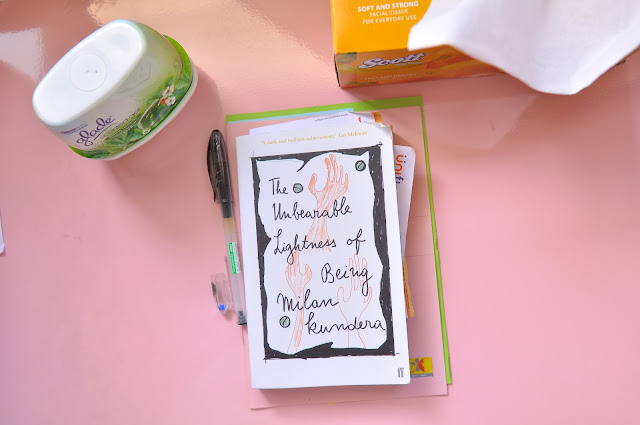 SOFT AND STRONG
FACIAL TISSUE
FOR EVERYDAY USE
Scott
glade
"A dark and brilliant achievement" Ian McEwan
The
Unbearable
Lightness of
Being
Milan
Kundera
ff